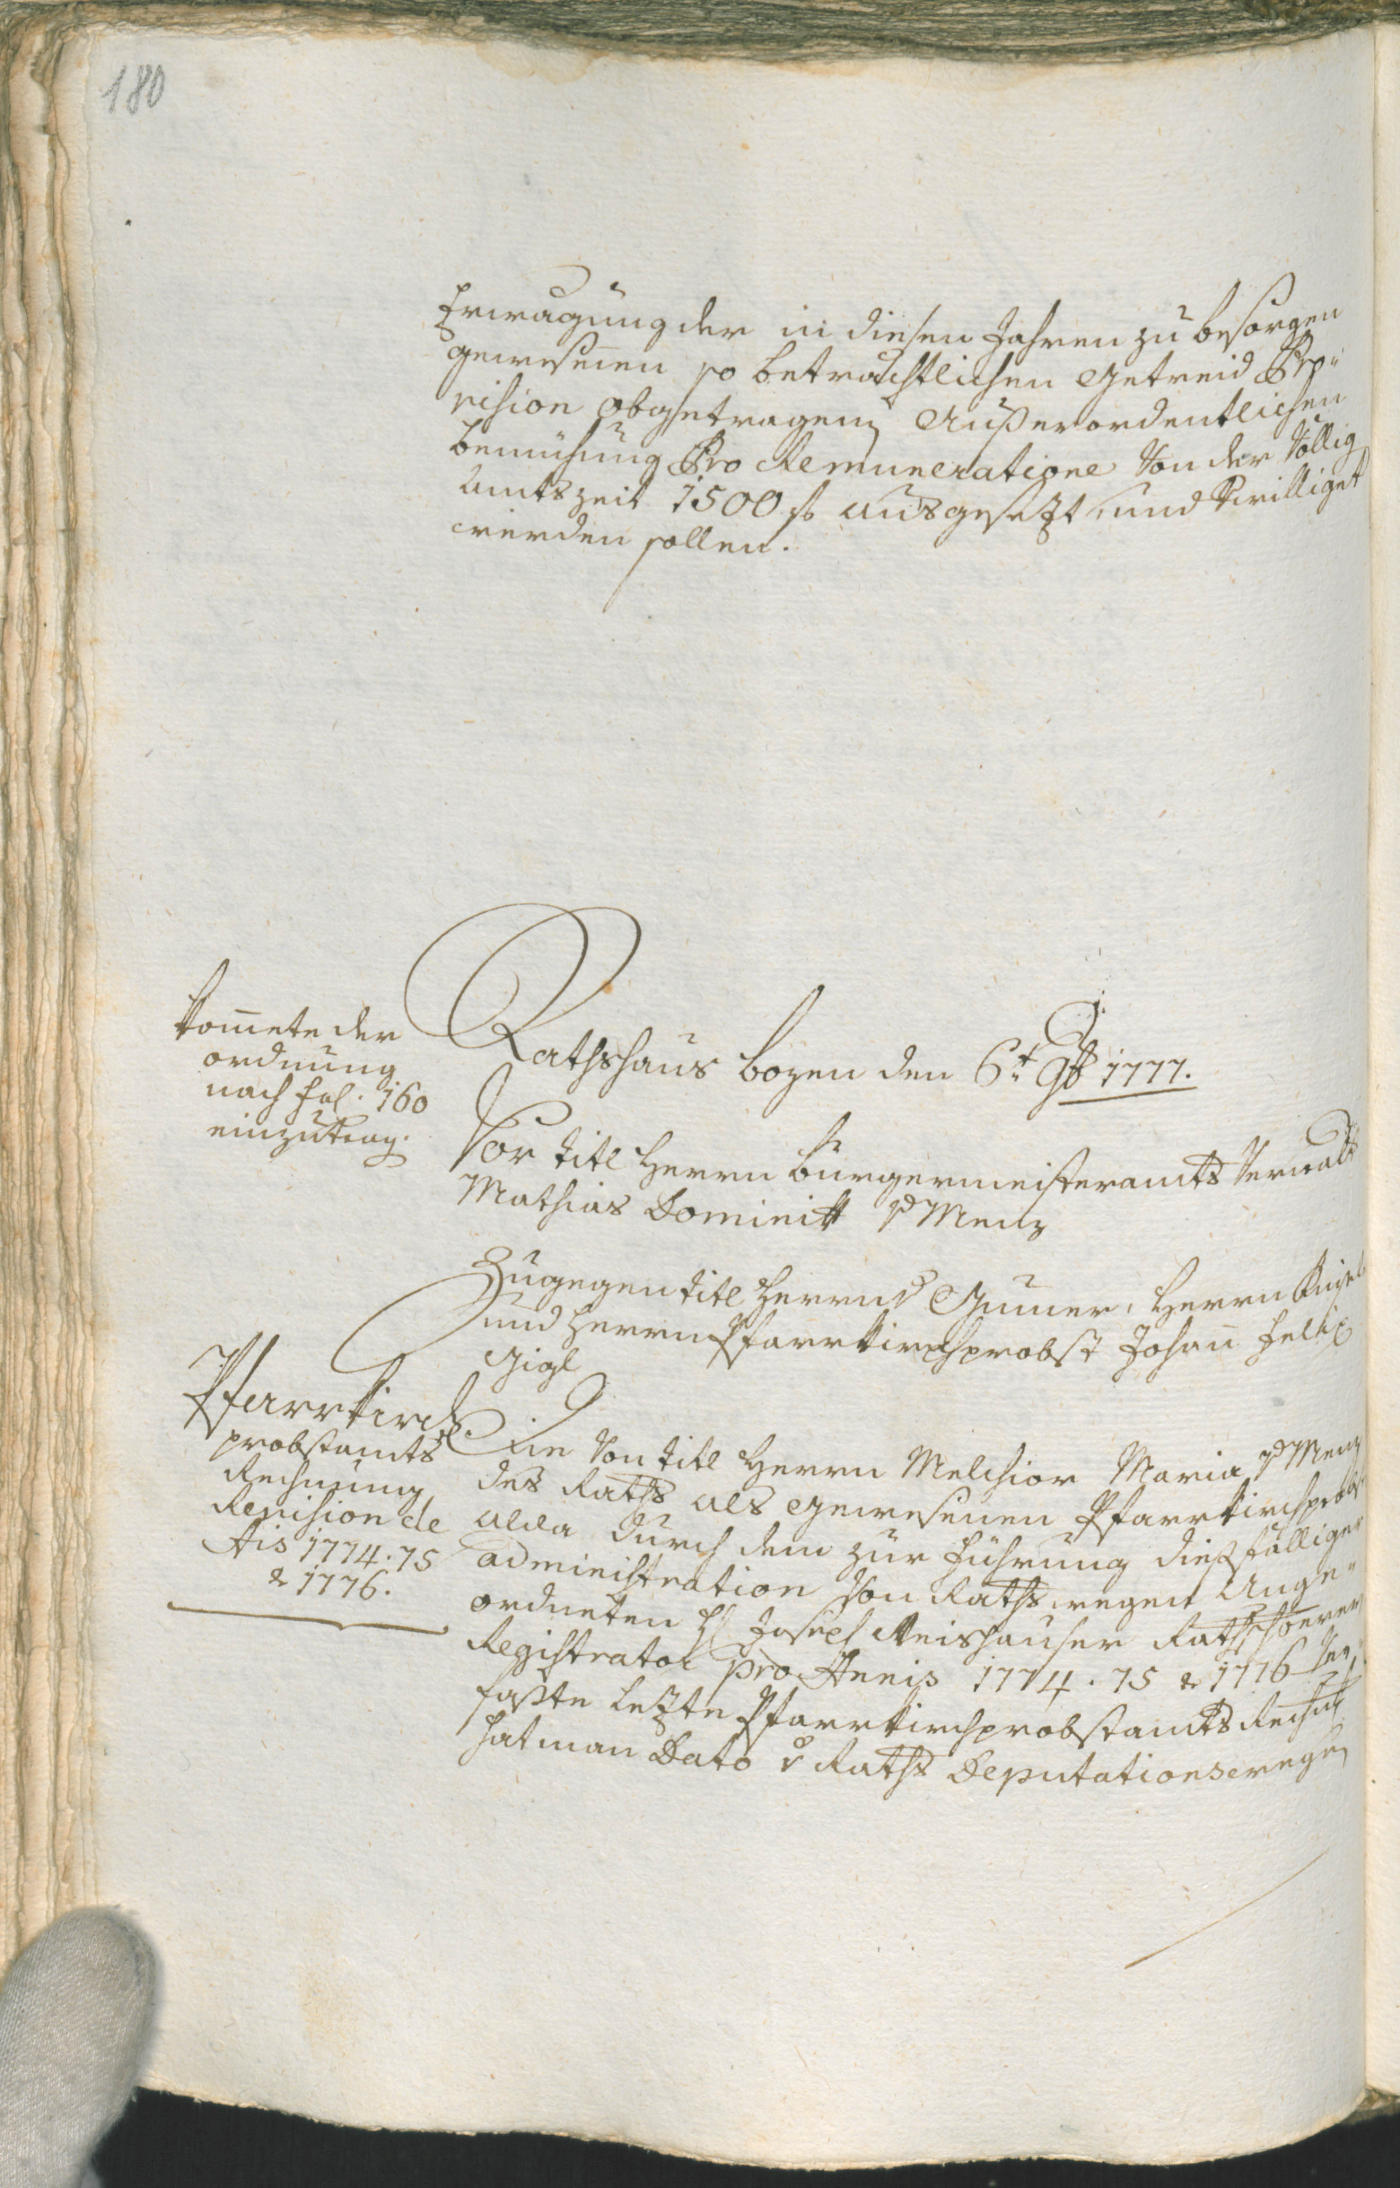 180
Erwägung der in diesen Jahren zu besorgen
gewesenen so beträchtlichen Getreid Pro-
vision obgetragenen Außerordentlichen
bemühung Pro Remuneratione von der völlig
Amtszeit 1500 f ausgesetzt und bewilliget
werden sollen.
komete der
ordnung
nach fol. 160
einzutrag.
Rathshaus Bozen den 6t 9b 1777.
Vor titl Herrn Burgermeisteramts Verwalt
Mathias Dominikk v Menz
Zugegen titl Herrn v Gumer, Herrn
und Herrn Pfarrkirchprobst Johan Felix
Gigl
Pfarrkirch
probstamts
Rechnung
Revision de
Ais 1774. 75
& 1776.
Die von titl Herrn Melchior Maria v Menz
des Raths als gewesenen Pfarrkirchprobst
alda durch dem zur Führung dießfälliger
administration von Rathswegen Ange-
ordneten H Joseph Reishauser Raths
Registrator pro Annis 1774. 75 & 1776 ver-
faßte letzte Pfarrkirchprobstamts Rechnung
hat man Dato v Raths Deputationswegen